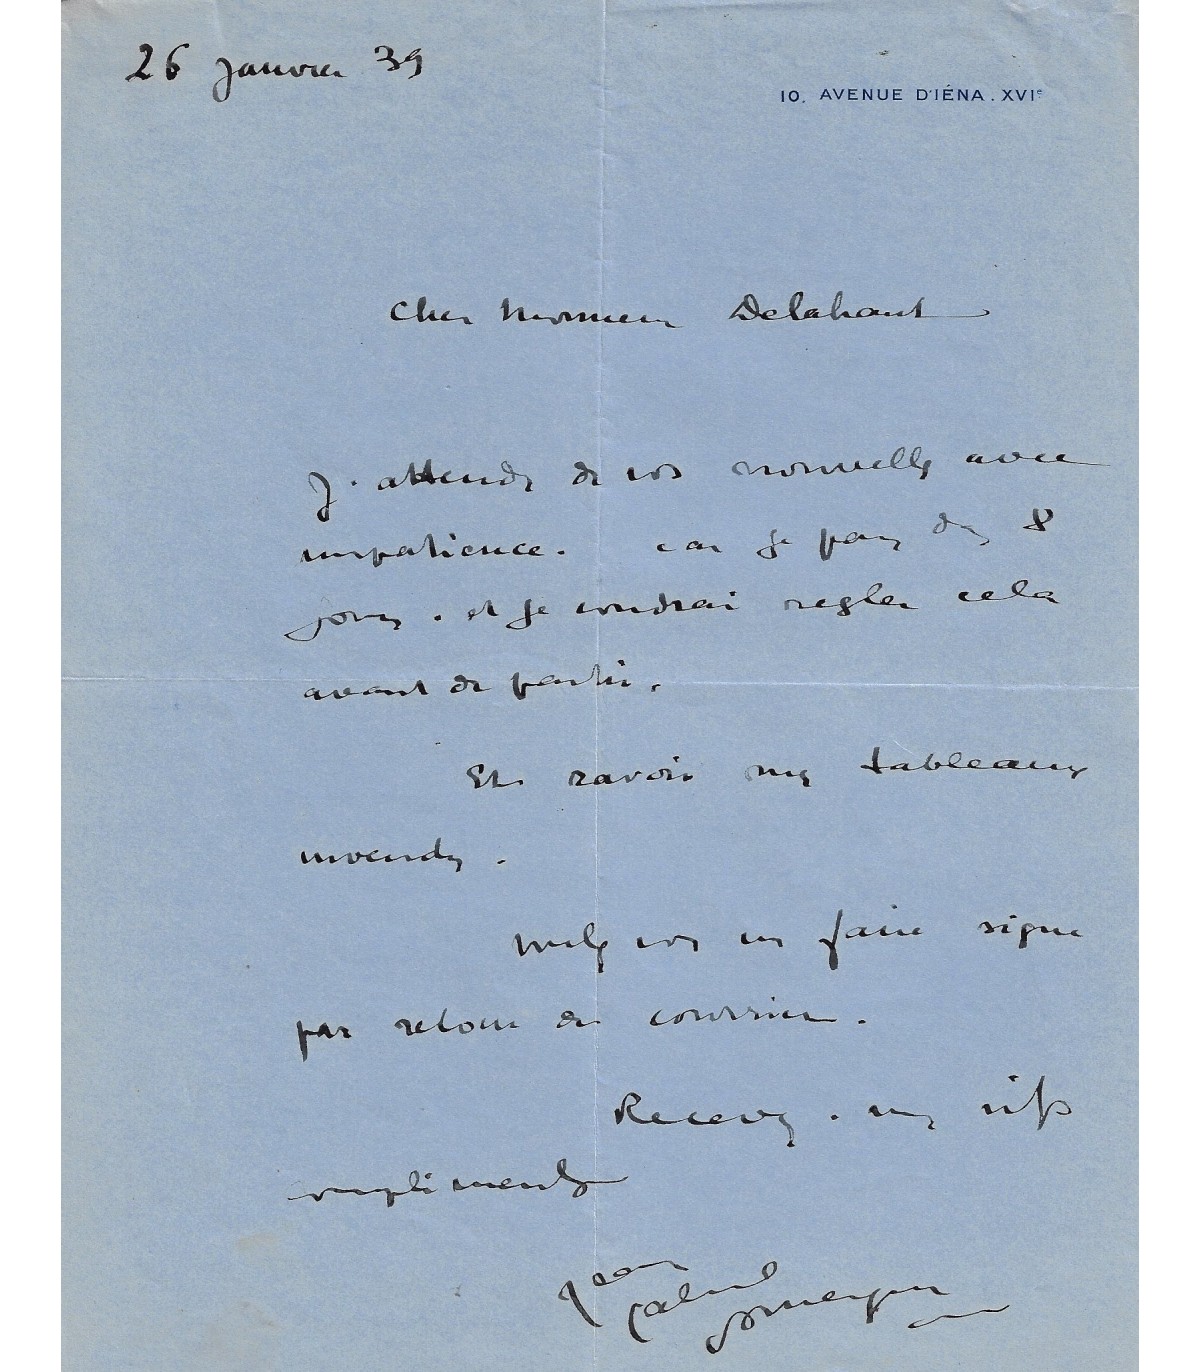 26 janvier 39
10. AVENUE D'IÉNA. XVIe
Cher Monsieur Delahaut
J'attends de vos nouvelles avec
impatience. car je pars dans 8
jours. et je voudrai regler cela
avant de partir.
Et ravoir mes tableaux
invendus.
faire signe
par retour du courrier.
Recevez. mes vifs
compliments
Jean
Gabriel
Domergue